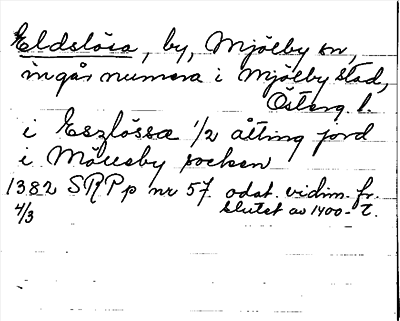 Eldslösa, by, Mjölby sn,
ingår numera i Mjölby stad,
Österg. l.
i Eszlössæ 1/2 åtting jord
i Mölleby socken
1382 SRPp nr 57. odat. vidim. fr.
4/3 slutet av 1400-t.